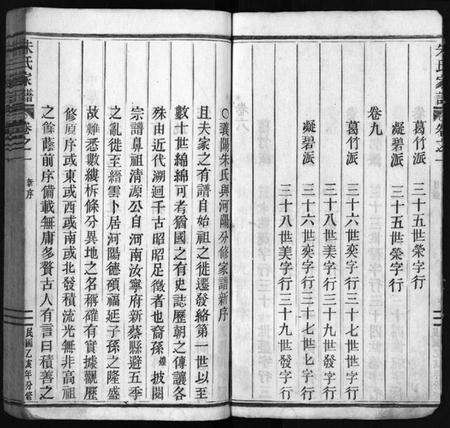 朱氏家譜 卷之一
葛竹派 三十五世榮字行
凝碧派 三十五世榮字行
卷九
葛竹派 三十六世奕字行 三十七世世字行
三十八世美字行 三十九世發字行
凝碧派 三十六世奕字行 三十七世匕字行
三十八世美字行 三十九世發字行
○襄陽朱氏與河陽分修家譜新序
且夫家之有譜自始祖之徙遷發絡第一世以至
數十世綿綿可者猶國之有史誌歷朝之傳讓各
殊由近代溯迴千古昭昭足徵者也裔孫 披閱
宗譜鼻祖清源公自河南汝寧府新蔡縣避五季
之亂徙至縉雲卜居河陽德積福延子孫之隆盛
故難悉數縷柝條分異地之名稱確有實據觀歷
修原序或東或西或南或北發積流光無非高祖
之餘蔭前序備載無庸多贅古人有言曰積善之
朱氏家譜 卷之一 新序 民國乙亥年分修